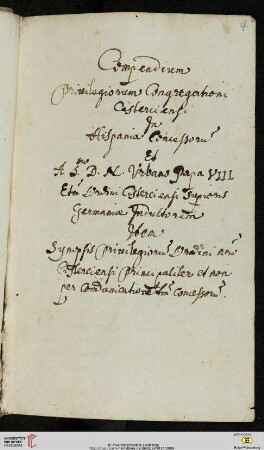 4
Compendium
Privilegiorum Congregationi
Cisterciensi
In
Hispania Concessorum
Et
A S. D. N. Urbano Papa VIII
Etiam Ordini Cisterciensi Superioris
Germaniæ Indultorum
Item
Synopsis Privilegiorum Ordini nro
Cisterciensi principaliter et non
per communicationem Concessorum.